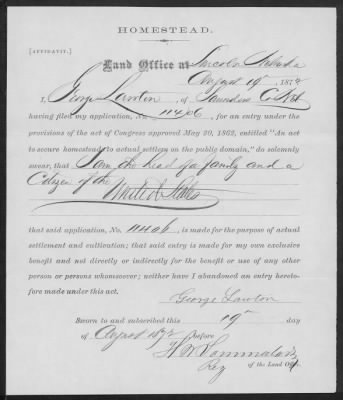 HOMESTEAD.
[AFFIDAVIT.]
Land Office at Lincoln Nebraska
August 19th, 1872
I, George Lawton, of Saunders Co Neb
having filed my application, No. 11406, for an entry under the
provisions of the act of Congress approved May 20, 1862, entitled "An act
to secure homesteads to actual settlers on the public domain," do solemnly
swear, that I am the head of a family and a
Citizen of the
United States
that said application, No. 11406, is made for the purpose of actual
settlement and cultivation; that said entry is made for my own exclusive
benefit and not directly or indirectly for the benefit or use of any other
person or persons whomsoever; neither have I abandoned an entry hereto-
fore made under this act.
George Lawton
Sworn to and subscribed this 19th day
of August 1872 before
Reg of the Land Office.